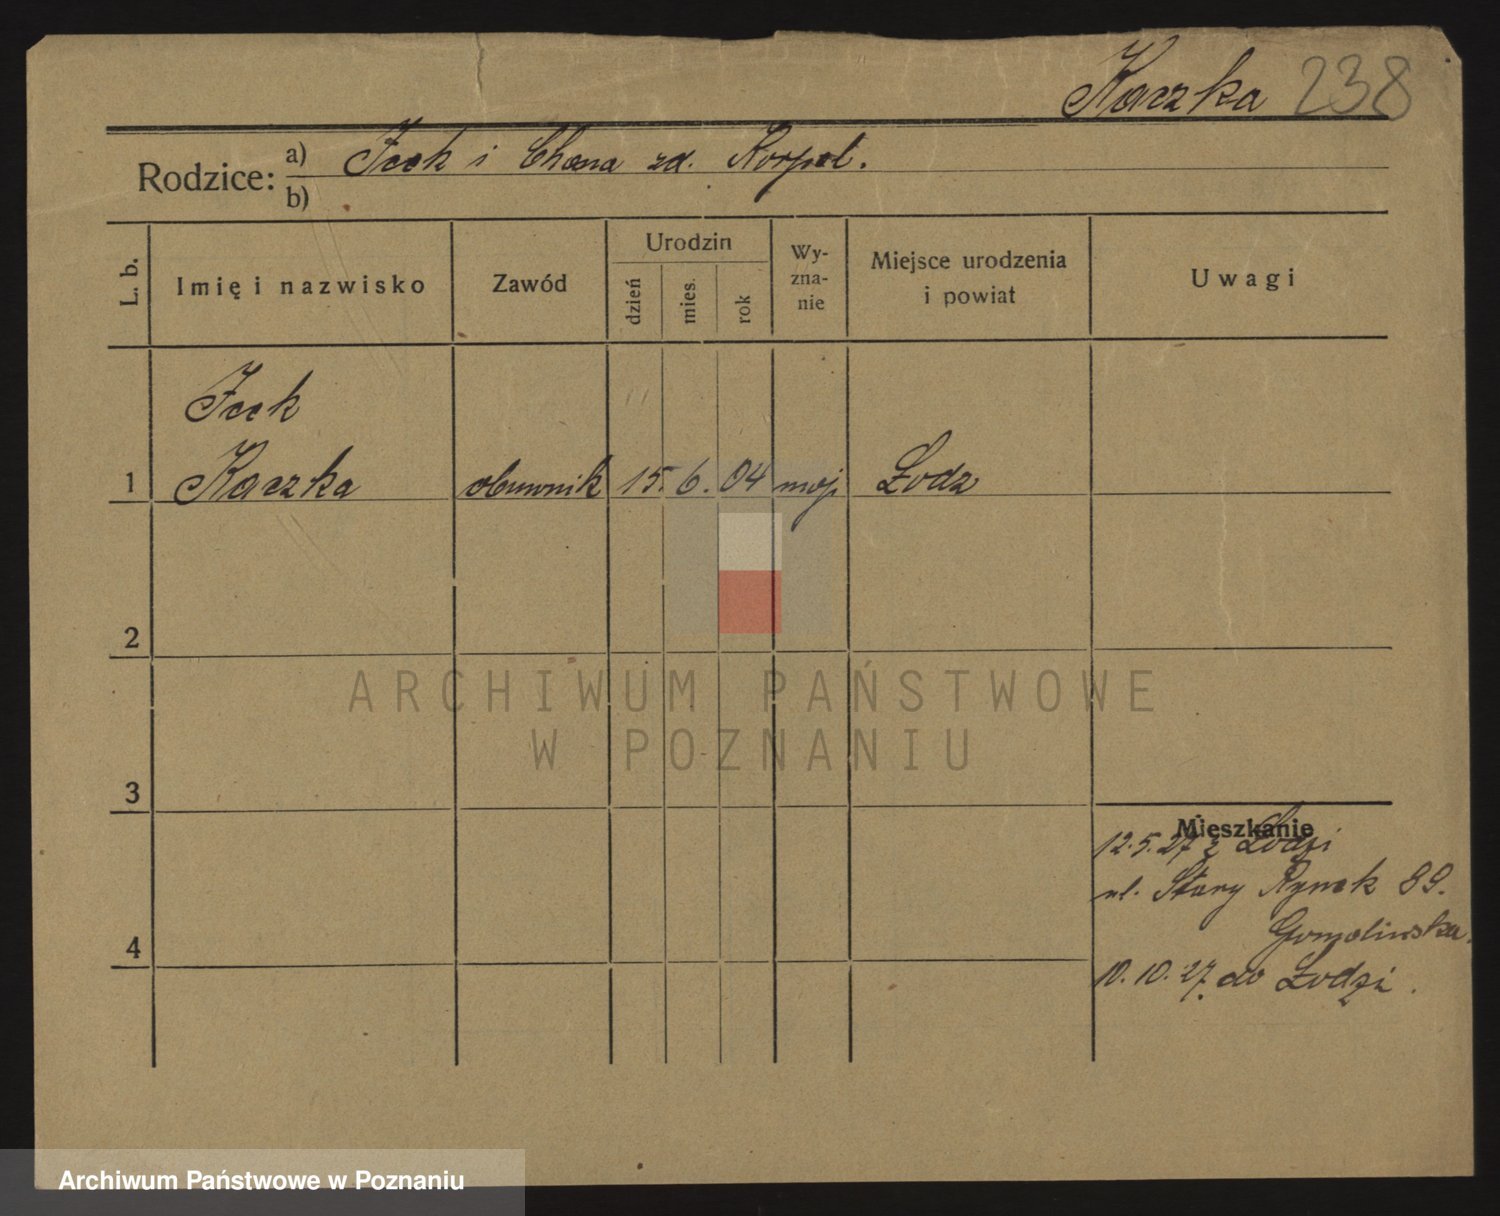 Kaczka 238
Rodzice: a) Icek i Chana zd. Korpel.
b)
L. b.
Imię i nazwisko
Zawód
Urodzin
dzień
mies.
rok
Wy-
zna-
nie
Miejsce urodzenia
i powiat
Uwagi
Icek
1 Kaczka obuwnik 15. 6. 04 moj Łodz
2
ARCHIWUM PAŃSTWOWE
W POZNANIU
3
Mieszkanie
12.5.27 z Łodzi
ul. Stary Rynek 89.
Gomolinska.
4
10.10.27. do Łodzi.
Archiwum Państwowe w Poznaniu